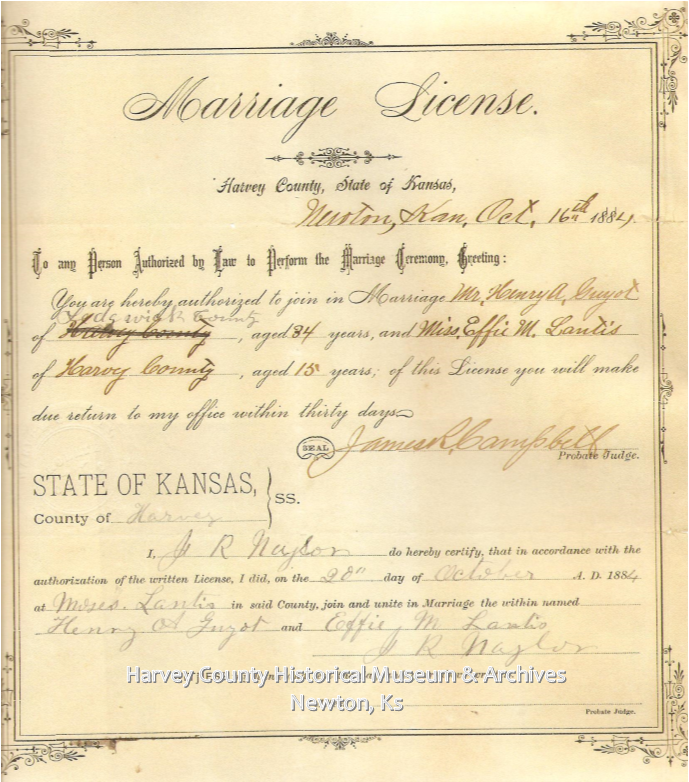 Marriage License.
Harvey County, State of Kansas,
Newton, Kan, Oct, 16th 1884.
To any Person Authorized by Law to Perform the Marriage Ceremony, Greeting:
You are hereby authorized to join in Marriage Mr. Henry A, Guyot
Sedgwick County
of Harvey County, aged 34 years, and Miss. Effie M. Lantis
of Harvey County, aged 15 years; of this License you will make
due return to my office within thirty days
SEAL James R. Campbell
Probate Judge.
STATE OF KANSAS,
County of Harvey
SS.
I, J R Naylor do hereby certify, that in accordance with the
authorization of the written License, I did, on the 20" day of October A. D. 1884
at Moses. Lantis in said County, join and unite in Marriage the within named
Henry A Guyot and Effie, M Lantis
J R Naylor
Harvey County Historical Museum & Archives
Newton, Ks
Probate Judge.